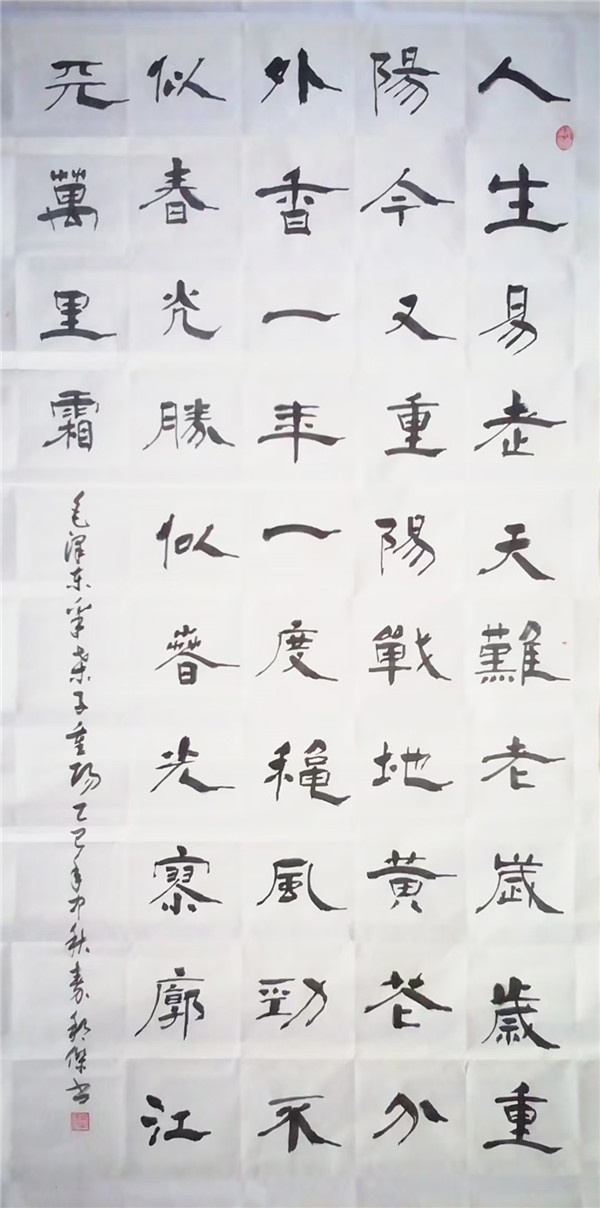 人生易老天難老歲歲重
陽今又重陽戰地黃花分
外香一年一度穐風勁不
似春光勝似萅光寥廓江
天萬里霜
毛泽东采桑子重阳乙巳年中秋傑书